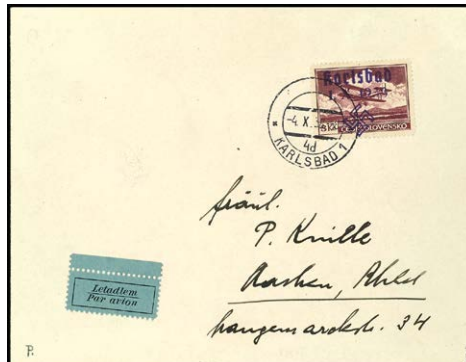 Karlsbad
1. X. 1938
ČESKOSLOVENSKO
-4. X. 3
4d
* KARLSBAD 1
Fräul.
P. Knille
Aachen, Rhld
Langemarckstr. 34
Letadlem
Par avion
P.